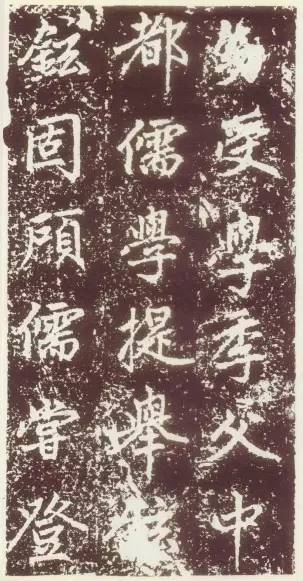 幼受學季父中
都儒學提舉鉉
鉉固碩儒嘗登